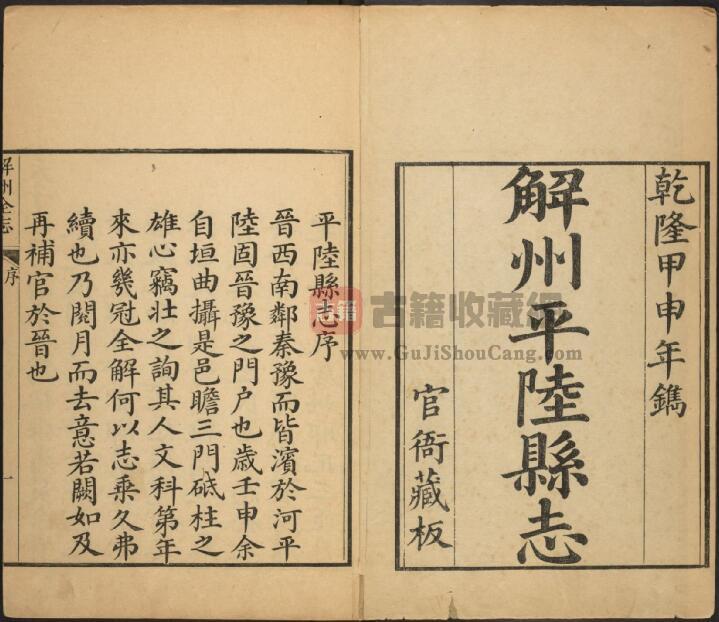 乾隆甲申年鐫
解州平陸縣志
官衙藏板
平陸縣志序
晉西南鄰秦豫而皆濱於河平
陸固晉豫之門户也歳壬申余
自垣曲攝是邑瞻三門砥柱之
雄心竊壯之詢其人文科第年
來亦幾冠全解何以志乘久弗
續也乃閱月而去意若闕如及
再補官於晉也
解州全志
序
一
志籍
古籍收藏網
www.GuJiShouCang.com